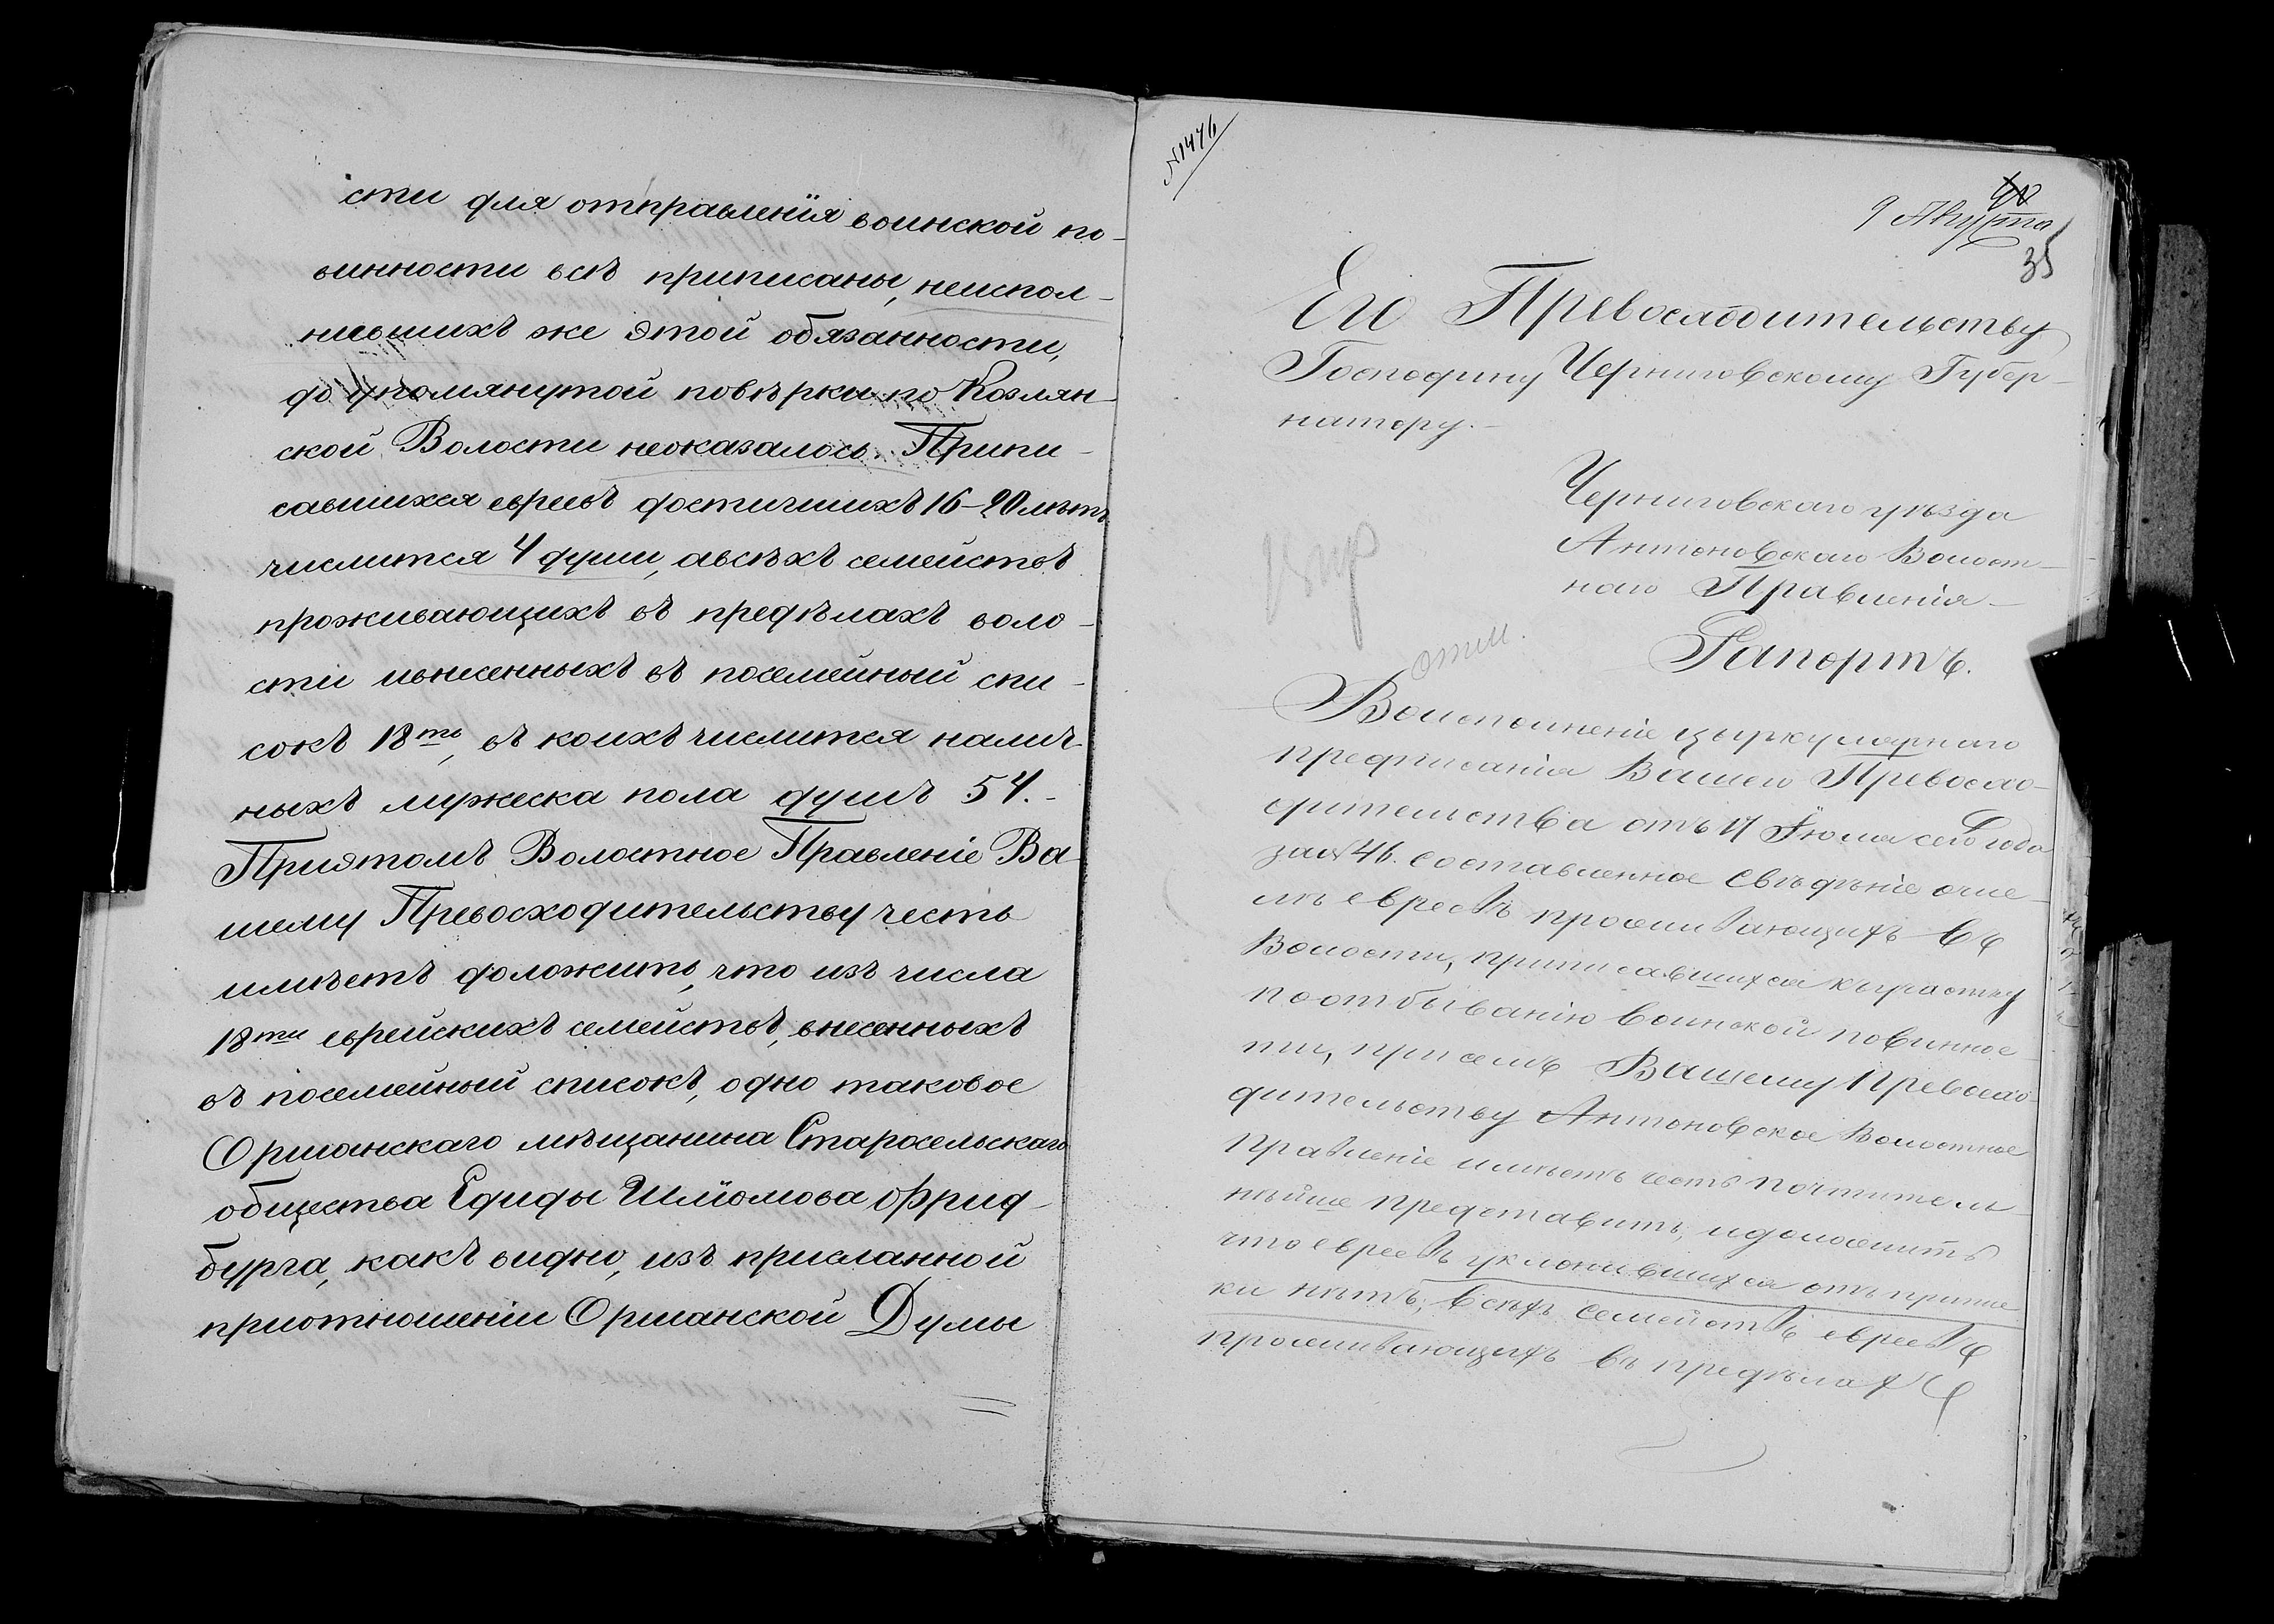 сти для отправленія воинской по-
винности всѣ приписаны, неиспол-
нившихъ же этой обязанности,
до упомянутой повѣрки по Козлян-
ской Волости неоказалось. Припи-
савшихся евреевъ достигшихъ 16-20 лѣтъ
числится 4 души, авсѣхъ семействъ
проживающихъ въ предѣлахъ воло-
сти ивнесенныхъ въ посемейный спи-
сокъ 18ть, въ коихъ числится налич-
ныхъ мужеска пола душъ 54.-
Приэтомъ Волостное Правленіе Ва-
шему Превосходительству честь
имѣетъ доложить, что изъ числа
18ти еврейскихъ семействъ, внесенныхъ
въ посемейный списокъ, одно таковое
Оршанскаго мѣщанина Старосельскаго
общества Едиды Шлйомова Фрид-
бурга, какъ видно, изъ присланной
приотношеніи Оршанской Думы
№1476
9 Августа
35
Его Превосходительству
Господину Черниговскому Губер-
натору.-
Черниговскаго уѣзда
Антоновскаго Волост-
наго Правленія-
Рапортъ.
Воисполненіе циркулярнаго
предписанія Вашего Превосхо-
дительства отъ 17 Іюля сего года
за №46. составленное свѣдѣніе очис-
лѣ евреевъ проживающихъ въ
Волости, приписавшихся къучастку
поотбыванію воинской повиннос-
ти, присемъ Вашему Превосхо-
дительству Антоновское Волостное
Правленіе имѣетъ честь почтитель-
нѣйше представить, идоложить
что евреевъ уклонившихся отъ припис-
ки нѣтъ; всѣхъ семействъ евреевъ
проживающихъ въ предѣлахъ